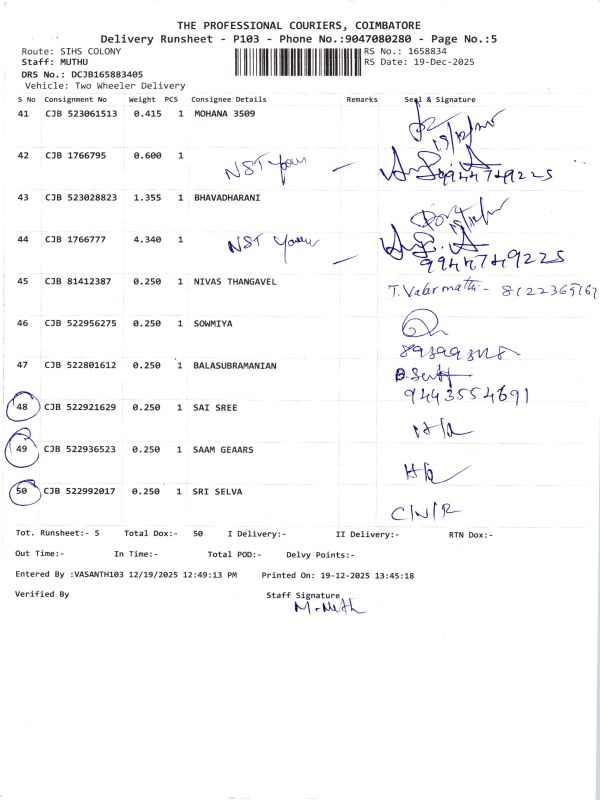 THE PROFESSIONAL COURIERS, COIMBATORE
Delivery Runsheet - P103 - Phone No.:9047080280 - Page No.:5
Route: SIHS COLONY RS No.: 1658834
Staff: MUTHU RS Date: 19-Dec-2025
DRS No.: DCJB165883405
Vehicle: Two Wheeler Delivery
S No Consignment No Weight PCS Consignee Details Remarks Seal & Signature
41 CJB 523061513 0.415 1 MOHANA 3509
42 CJB 1766795 0.600 1 NST - 9944749225
43 CJB 523028823 1.355 1 BHAVADHARANI
44 CJB 1766777 4.340 1 NST - 9944749225
45 CJB 81412387 0.250 1 NIVAS THANGAVEL T. Valarmathi -
46 CJB 522956275 0.250 1 SOWMIYA
47 CJB 522801612 0.250 1 BALASUBRAMANIAN
9443554691
48 CJB 522921629 0.250 1 SAI SREE
49 CJB 522936523 0.250 1 SAAM GEAARS
50 CJB 522992017 0.250 1 SRI SELVA C/N/R
Tot. Runsheet:- 5 Total Dox:- 50 I Delivery:- II Delivery:- RTN Dox:-
Out Time:- In Time:- Total POD:- Delvy Points:-
Entered By :VASANTH103 12/19/2025 12:49:13 PM Printed On: 19-12-2025 13:45:18
Verified By Staff Signature